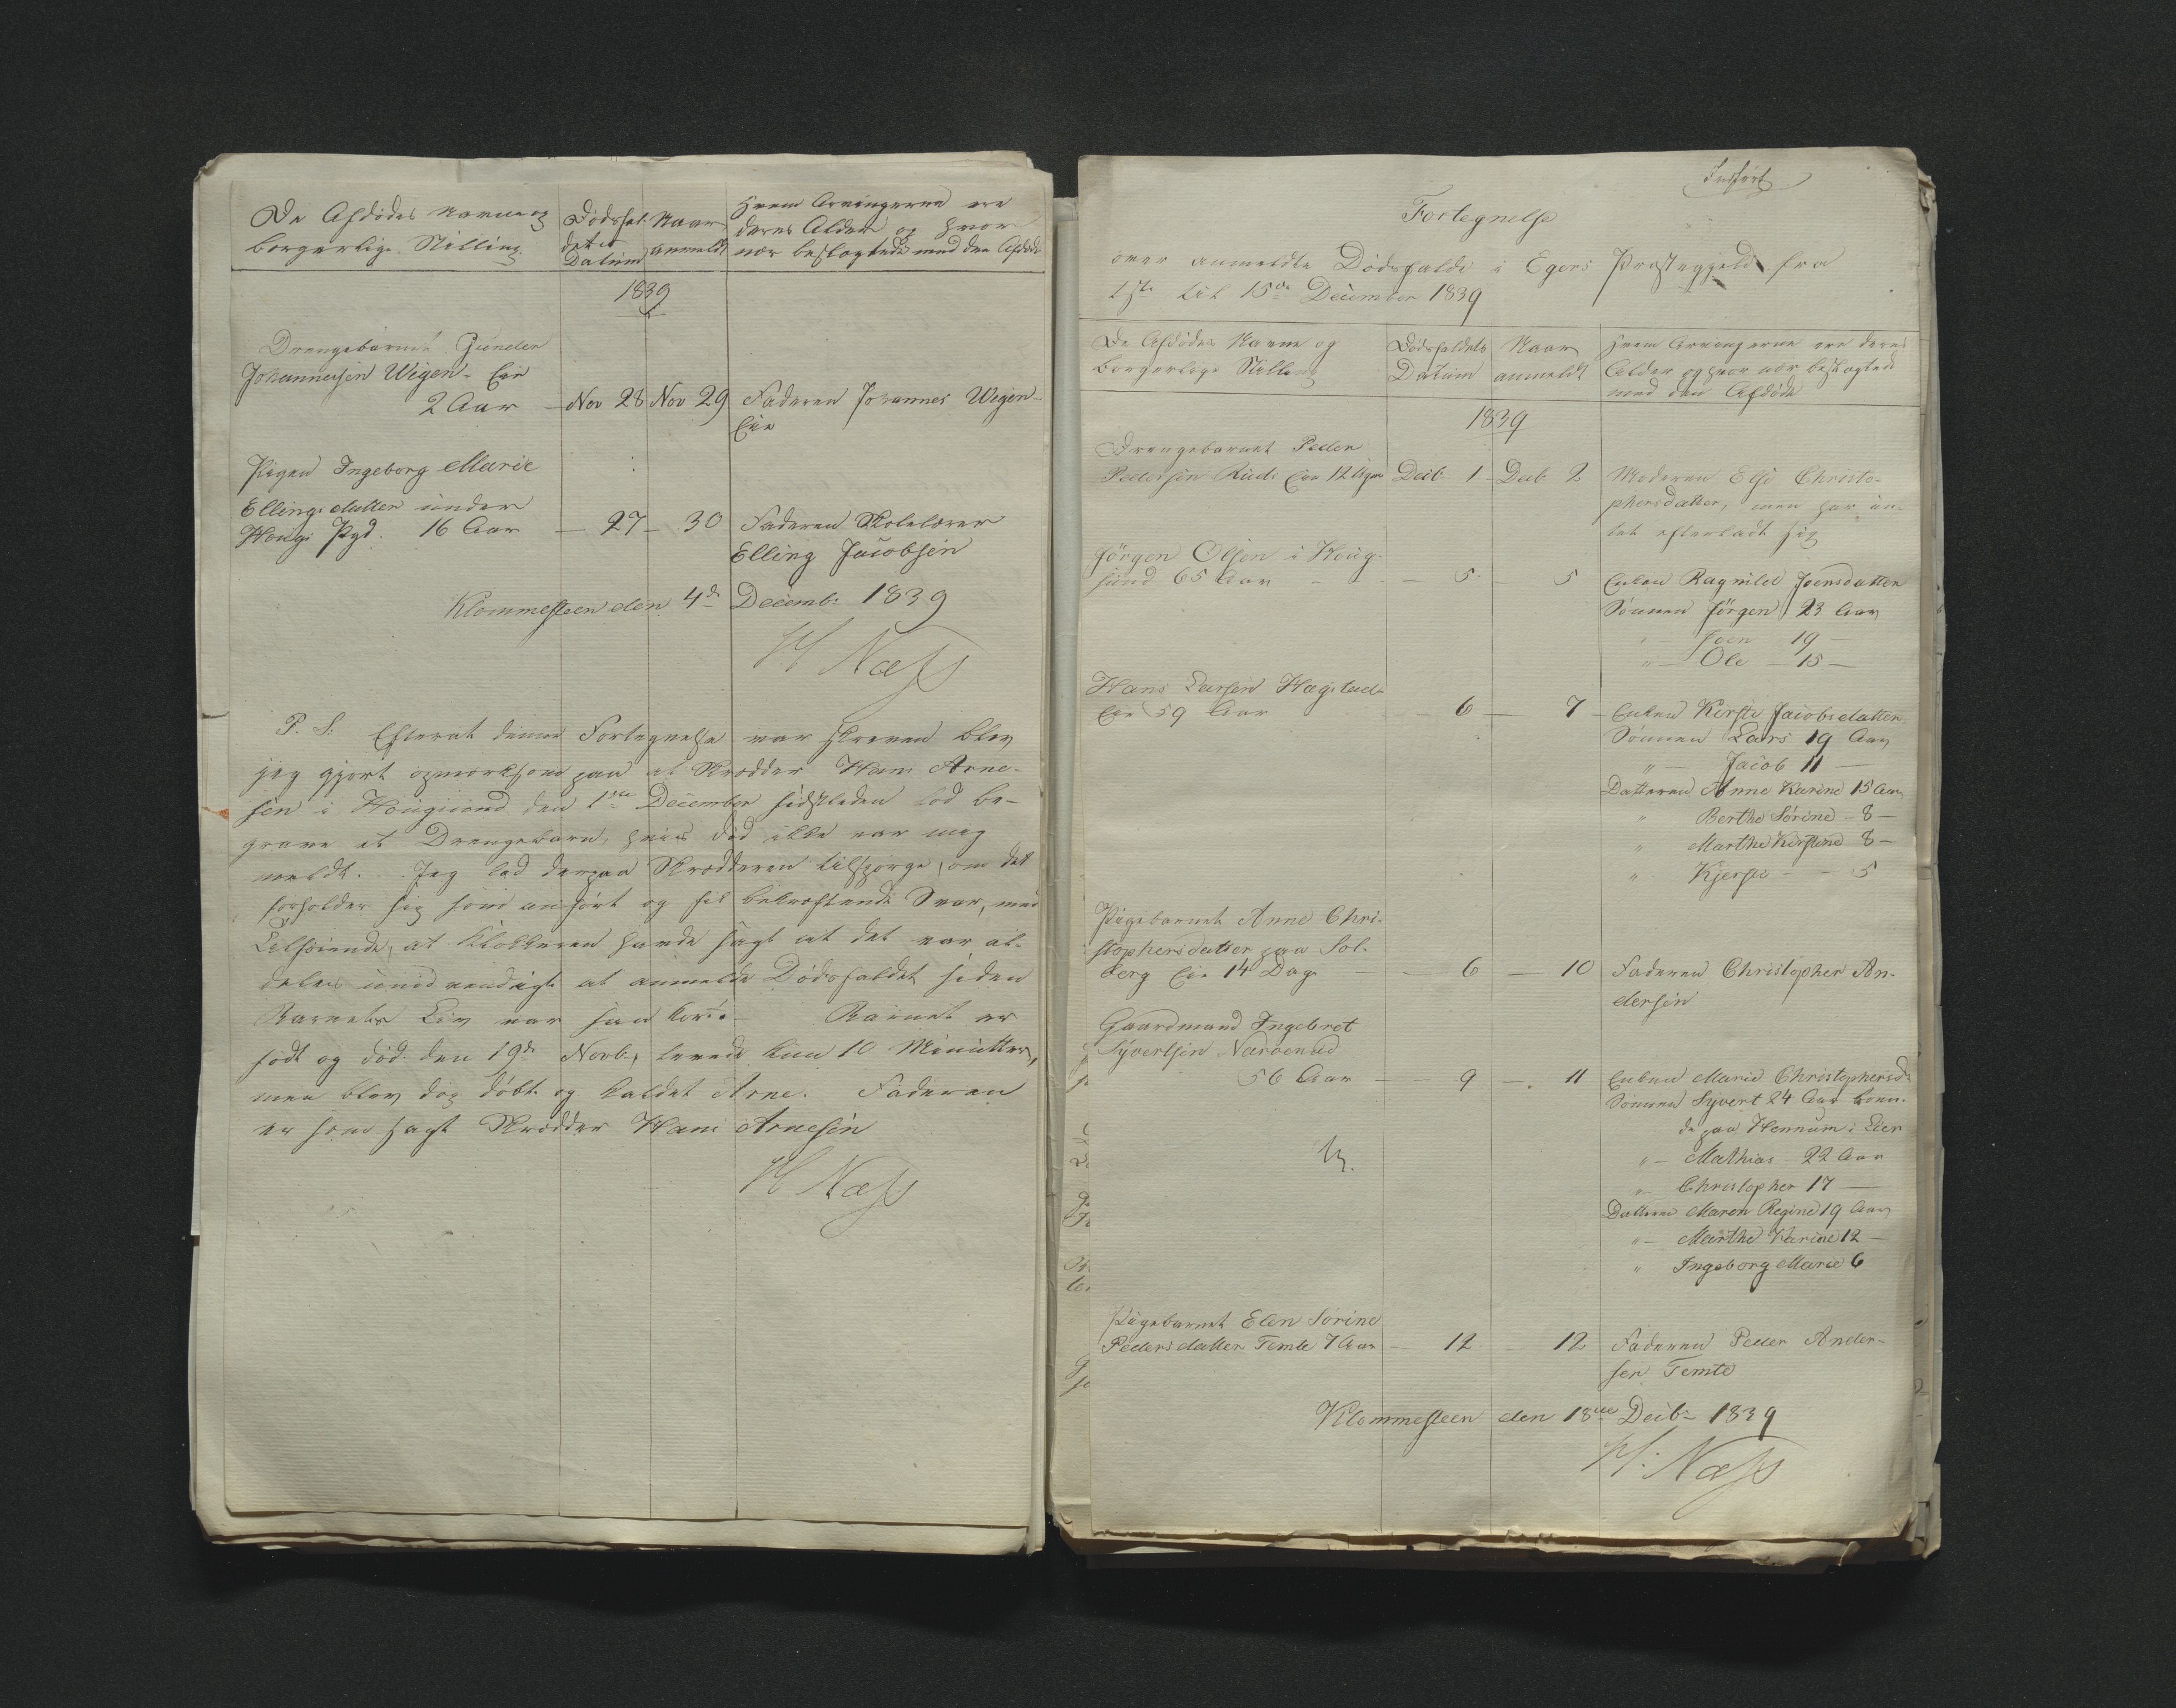 De Afdødes Navne og
borgerlige Stilling.
Dødsfal-
dets
Datum
Naar
anmeldt
Hvem Arvingerne ere
deres Alder og hvor
nær beslægtede med den Afdøde
1839
Drengebarnet Gunder
Johannesen Wigen- Eie
2 Aar — Nov 28 Nov 29 Faderen Johannes Wigen-
Eie
Pigen Ingeborg Marie
Ellingsdatter under
Hougs Pgd. 16 Aar — 27 — 30 Faderen Skolelærer
Elling Jacobsen
Klommesteen den 4de Decemb: 1839
H Næss
P. S. Efterat denne Fortegnelse var skreven blev
jeg gjort opmærksom paa at Skrædder Hans Arne-
sen i Hougsund den 1ste December sidstleden lod be-
grave et Drengebarn, hvis Død ikke var mig
meldt. Jeg lod derpaa Skrædderen tilspørge, om det
forholder sig som anført og fik bekræftende Svar, med
Tilføiende, at Klokkeren havde sagt at det var al-
deles unødvendigt at anmelde Dødsfaldet siden
Barnets Liv var saa kort. Barnet er
født og død den 19de Novb., levede kun 10 Minutter,
men blev dog døbt og kaldet Arne. Faderen
er som sagt Skrædder Hans Arnesen
H Næss
Indført
Fortegnelse
over anmeldte Dødsfalde i Egers Præstegjeld fra
1ste til 15de December 1839
De Afdødes Navne og
borgerlige Stilling
Dødsfaldets
Datum
Naar
anmeldt
Hvem Arvingerne ere deres
Alder og hvor nær beslægtede
med den Afdøde
1839
Drengebarnet Peder
Pedersen Ruds Eie 12 Uger Decb. 1 — Decb. 2 Moderen Else Christo-
phersdatter, men har in-
tet efterladt sig
Jörgen Olsen i Houg-
sund 65 Aar — 5 — 5 Enken Ragnild Joensdatter
Sönnen Jörgen 23 Aar
" — Joen 19 —
" — Ole — 15 —
Hans Larsen Hagstad-
Eie 59 Aar — 6 — 7 — Enken Kirsti Jacobsdatter
Sönnen Lars 19 Aar
" — Jacob 11 —
Datteren Anne Karine 15 Aar
" Berthe Sörine — 8 —
" Marthe Kirstine 8 —
" Kjersti — — 5
Pigebarnet Anne Chri-
stophersdatter paa Sol-
berg Eie 14 Dage — 6 — 10 Faderen Christopher An-
dersen
Gaardmand Ingebret
Syvertsen Narverud
56 Aar — 9 — 11 Enken Marie Christophersd:
Sönnen Syvert 24 Aar boen-
de paa Hennum i Lier
" — Mathias 22 Aar
" — Christopher 17 —
Datteren Maren Regine 19 Aar
" — Marthe Karine 12 —
" Ingeborg Marie 6
Pigebarnet Elen Sörine
Pedersdatter Temte 7 Aar — 12 — 12 Faderen Peder Ander-
sen Temte
Klommesteen den 18de Decb: 1839
H. Næss